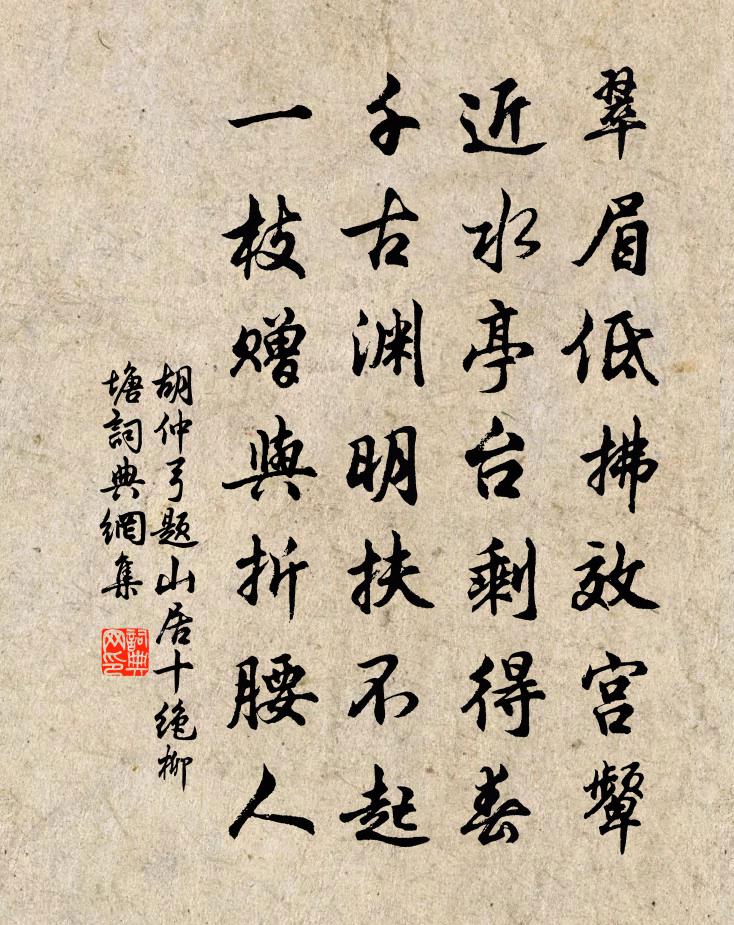 翠眉低拂效宫颦
近水亭台剩得春
千古渊明扶不起
一枝赠與折腰人
胡仲弓题山居十绝柳
塘詞典網集
詞典网印